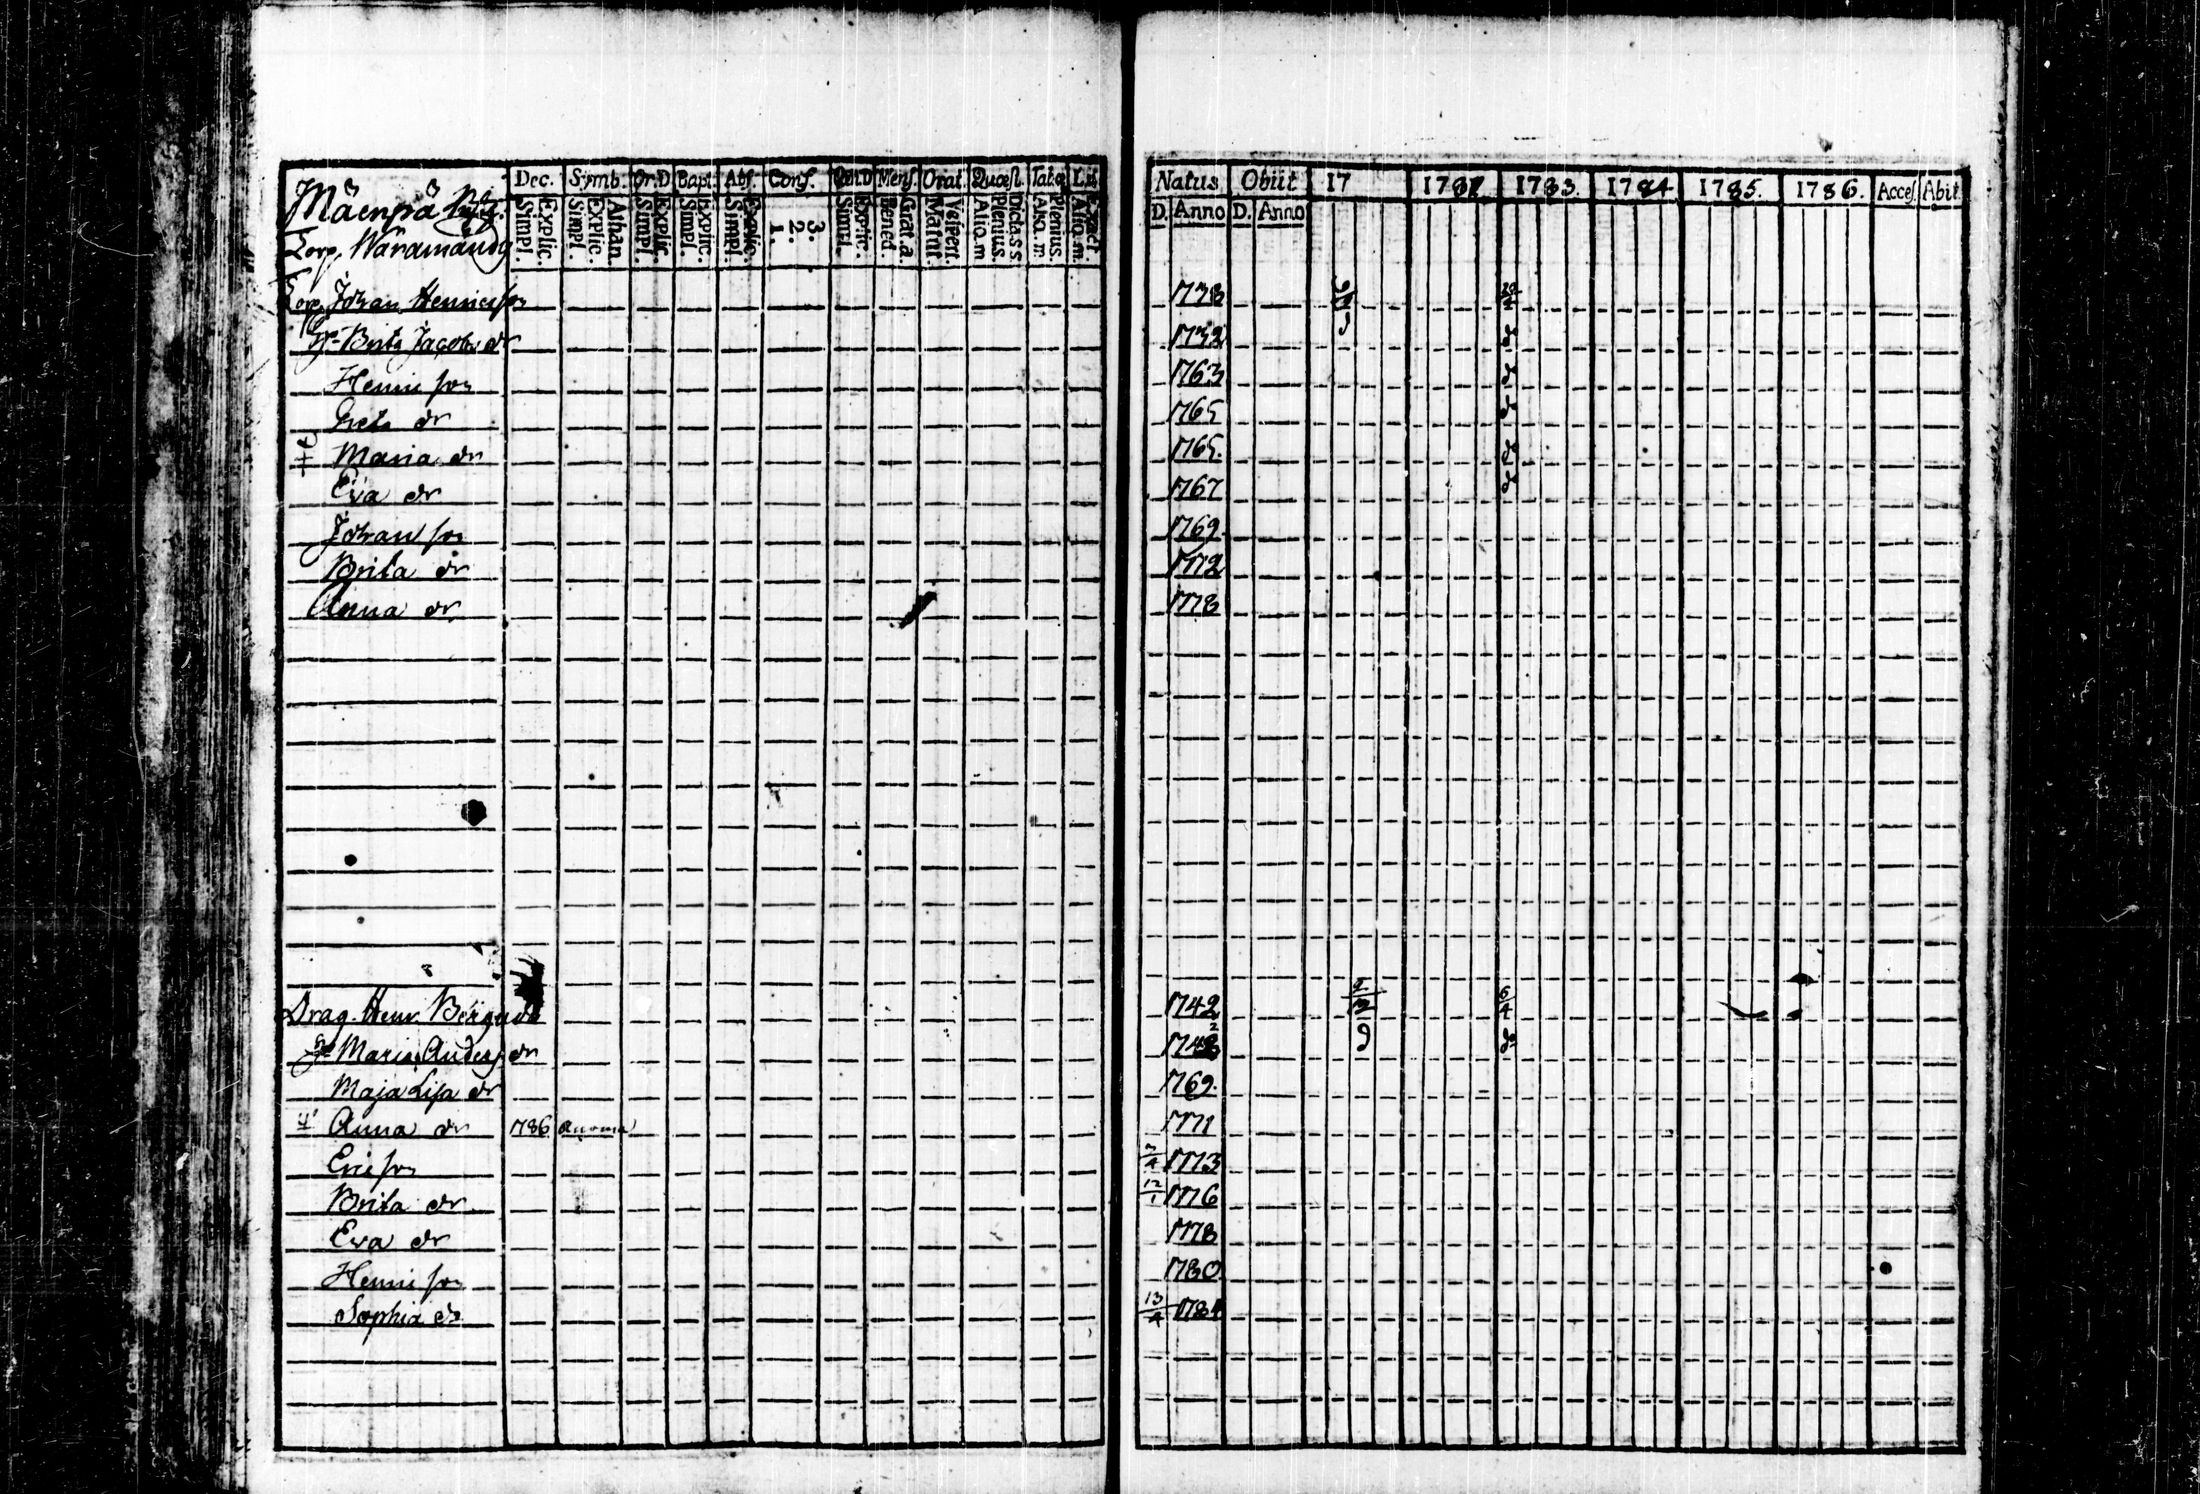 Dec. Symb. Or.D Bapt. Abs. Conf. Men[s]. Orat. Quæst.
Simpl. Explic. Simpl. Explic. Athan. Simpl. Explic. Simpl. Explic. Simpl. Explic. 1. 2. 3. Simpl. Explic. Bened. Grat. a. Matut. Vespert. Alio. m Plenius. Dicta s s. Aliq. m Plenius.
Natus Obiit 17 1782 1783. 1784 1785. 1786. Acces. Abit
D. Anno D. Anno
Mäenpä By.
Torp. Wäramäund
Torp. Johan Henricsson 1738 20/4
H. Brita Jacobs dr 1732 d
Henric son 1763 d
Greta dr 1765 d
Maria dr 1765. d
Eva dr 1767 d
Johan son 1769.
Brita dr 1772
Anna dr 1778
Drag. Henr. Bergud 1742 2/3 6/4
H. Maria Anders dr
Maja Lisa dr 1769.
Anna dr 1786 1771
Eric son 1773
Brita dr 12/1 1776
Eva dr 1778
Henric son 1780
Sophia dr 13/4 1784